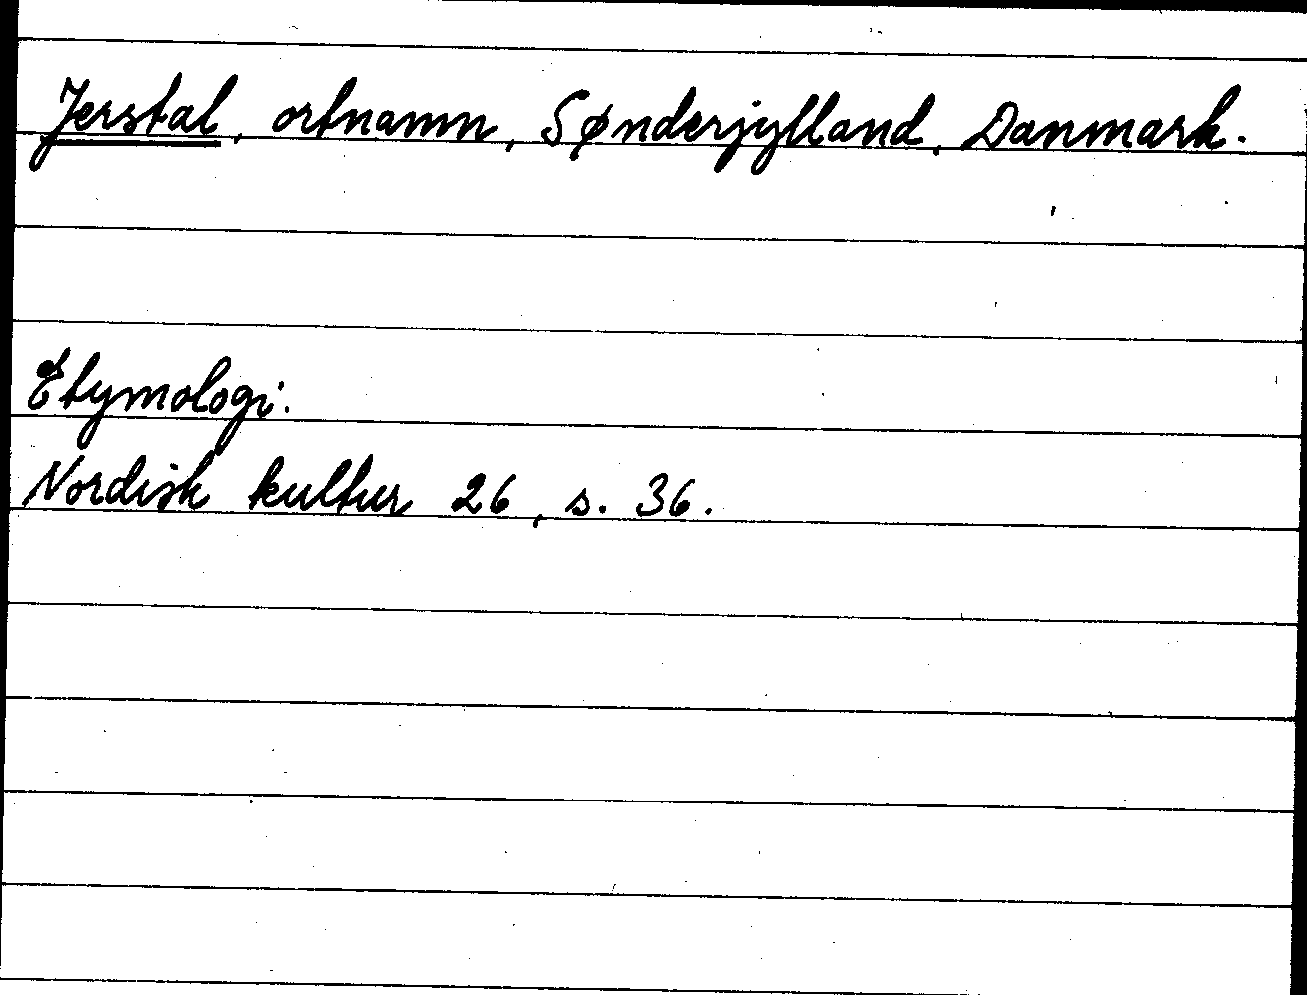 Jerstal, ortnamn, Sønderjylland, Danmark.
Etymologi.
Nordisk kultur 26, s. 36.